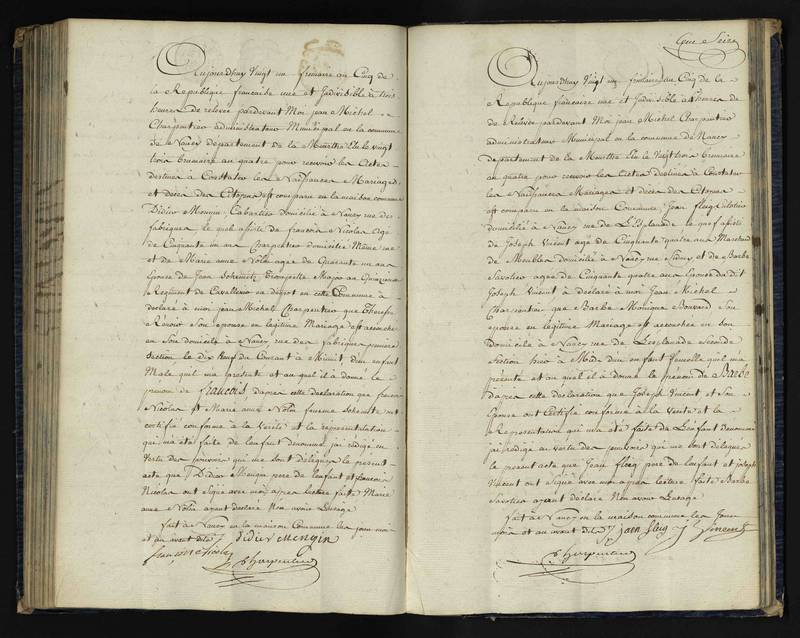 Aujourdhuy Vingt un frimaire an Cinq de
la Republique francaise une et Indivisible à trois
heures de relevée pardevant Moi jean Michel
Charpentier administrateur Municipal en la commune
de Nancy departement de la Meurthe Elu le vingt
trois brumaire an quatre pour recevoir les Actes
destinés à Constater les Naissances Mariages
et décès des Citoyens est comparu en la maison commune
Didier Cabartier domicilié à Nancy rue des
fabriques le quel assisté de francois Nicolas agé
de Cinquante un ans Charpentier domicilié Même rue
et de Marie anne Nolin agée de Quarante un ans
Epouse de Jean Trompette Major au
Regiment de Cavallerie en dépot en cette Commune à
declaré à moi jean Michel Charpentier que Therese
Son epouse en legitime Mariage est accouchée
en Son domicile à Nancy rue des fabriques premiere
Section le dix Neuf du Courant à Minuit d'un enfant
Male quil ma presenté et au quel il à donné le
prenom de francois dapres cette declaration que francois
Nicolas et Marie anne Nolin femme ont
certifié conforme à la Verité et la representation
qui ma été faite de lenfant denommé, jai redigé en
Vertu des pouvoirs qui me sont délegués le present
acte que Didier Mengin pere de lenfant et francois
Nicolas ont signé avec moi apres lecture faite Marie
anne Nolin ayant declaré Non avoir Lusage
fait à Nancy en la maison Commune les jour mois
et an avant dits didier Mengin
françois Nicolas
Charpentier
Cent Seize
Aujourdhuy Vingt un frimaire an Cinq de la
Republique francaise une et Indivisible à heures
de Relevée pardevant Moi Jean Michel Charpentier
administrateur Municipal en la commune de Nancy
departement de la Meurthe Elu le Vingt trois brumaire
an quatre pour recevoir les Actes destinés à Constater
les Naissances Mariages et décès des Citoyens
est comparu en la maison Commune Jean
domicilié à Nancy rue de L'Esplanade le quel assisté
de Joseph Vincent agé de Cinquante quatre ans Marchand
de Meubles domicilié à Nancy rue et de Barbe
agée de Cinquante quatre ans Epouse dudit
Joseph Vincent à declaré à moi Jean Michel
Charpentier que Barbe Monique Son
epouse en legitime Mariage est accouchée en Son
domicile à Nancy rue de L'esplanade Seconde
Section hier à Midi d'un enfant femelle quil ma
presenté et au quel il à donné le prenom de Barbe
dapres cette declaration que Joseph Vincent et Son
Epouse ont Certifié conforme à la Verité et la
Representation qui ma été faite de Lenfant denommé
jai redigé en vertu des pouvoirs qui me sont délegués
le present acte que Jean pere de lenfant et joseph
Vincent ont signé avec moi apres lecture faite Barbe
ayant declaré Non avoir Lusage
fait à Nancy en la maison commune les Jour
mois et an avant dits J Vincent
Charpentier